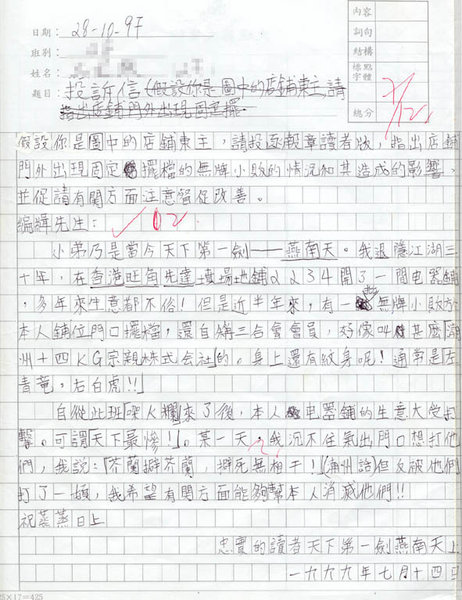 日期：28-10-97
班別：
姓名：
題目：投訴信（假設你是圖中的店鋪東主，請
指出店鋪門外出現固定擺
內容
詞句
結構
標點
字體
總分
假設你是圖中的店鋪東主，請投函報章讀者版，指出店鋪
門外出現固定擺檔的無牌小販的情況和其造成的影響，
並促請有關方面注意督促改善。
編輯先生：
小弟乃是當今天下第一劍——燕南天。我退隱江湖三
十年，在香港旺角先達廣場地鋪2234開了一間电器鋪
，多年來生意都不俗！但是近半年來，有一無牌小販於
本人鋪位門口擺檔，還自稱三合會會員，好像叫甚麼「潮
州十四KG宗親株式会社」的。身上還有紋身呢！通常是左
青龍，右白虎!!
自從此班來了後，本人电器鋪的生意大受打
擊。可謂「天下最慘！」。某一天，我沉不住氣出門口想打他
們，我說：「芥蘭擗芥蘭，擗死無相干！」（潮州語）但反被他們
打了一頓，我希望有關方面能夠幫本人消滅他們!!
祝蒸蒸日上
忠實的讀者天下第一劍燕南天上
一九九九年七月十四日
25×17=425